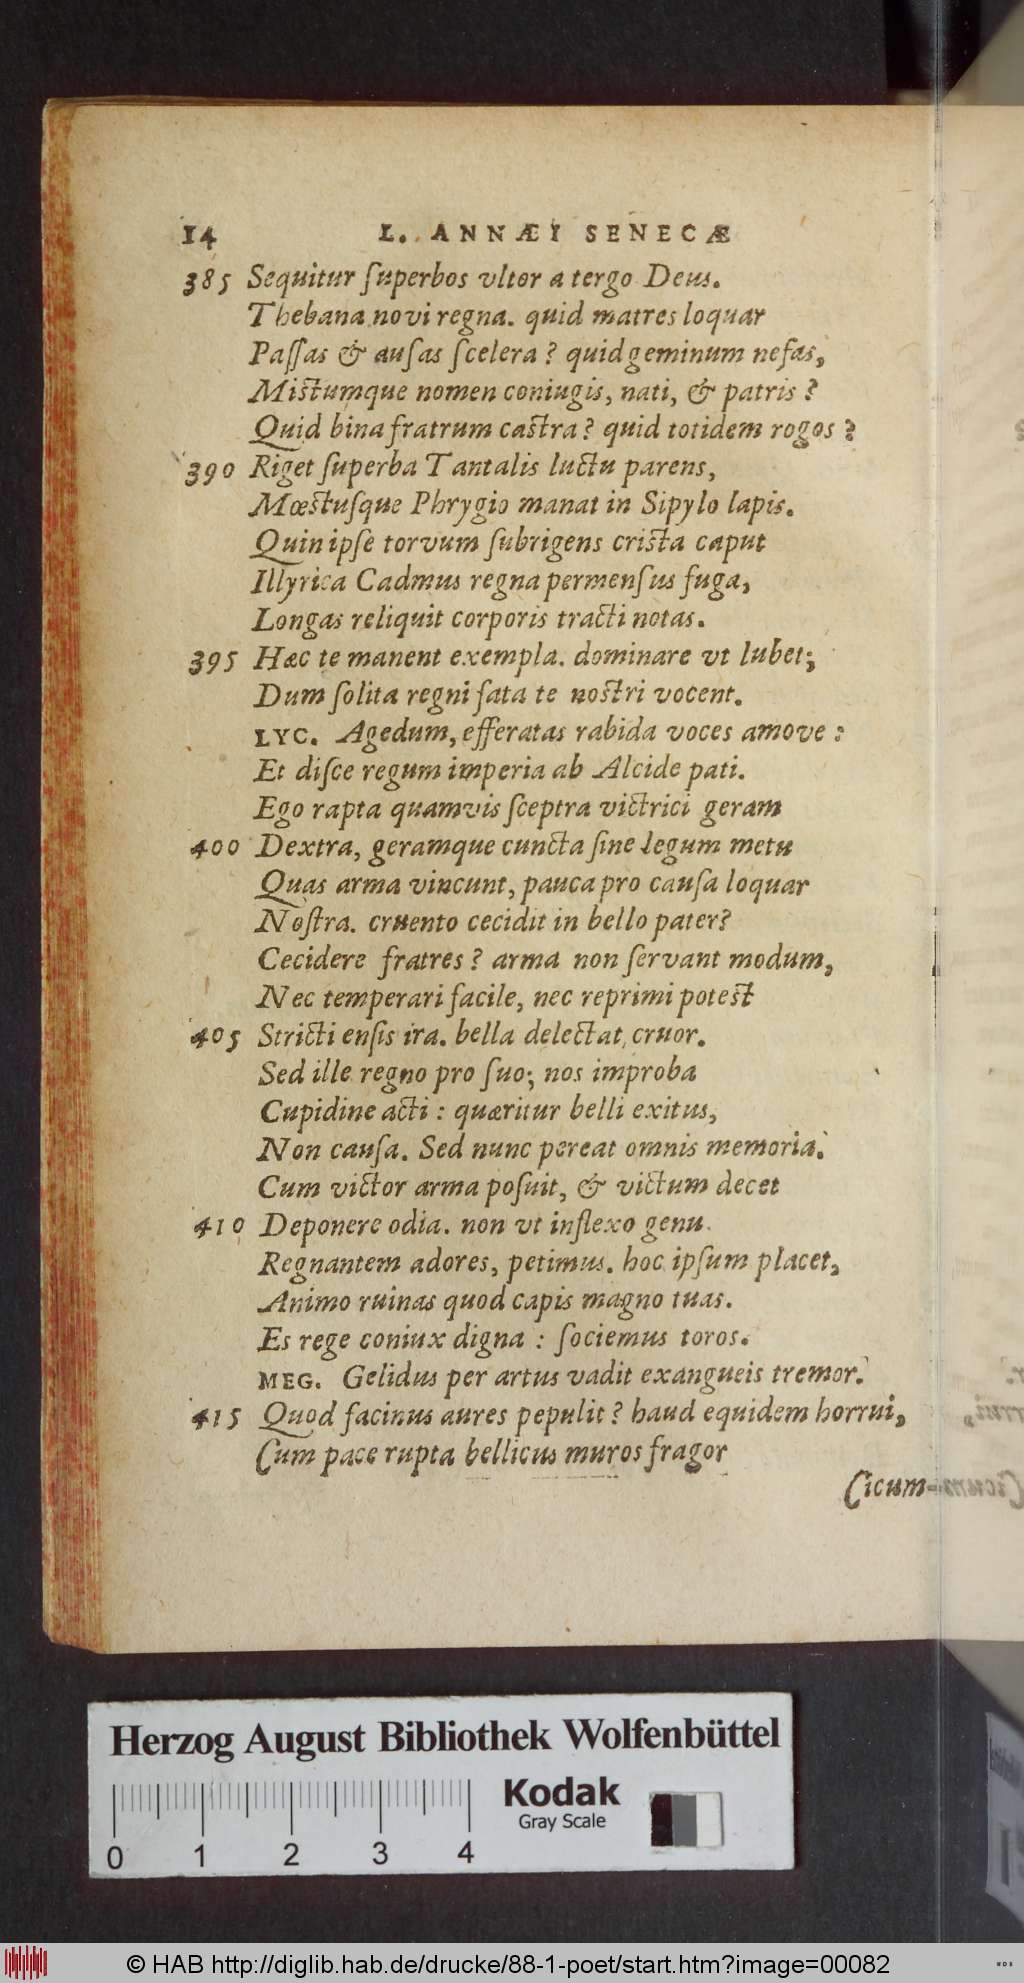 14 L. ANNÆI SENECÆ
385 Sequitur ſuperbos vltor a tergo Deus.
Thebana novi regna. quid matres loquar
Paſſas & auſas ſcelera? quid geminum nefas,
Miſtumque nomen coniugis, nati, & patris?
Quid bina fratrum caſtra? quid totidem rogos?
390 Riget ſuperba Tantalis luctu parens,
Mœſtuſque Phrygio manat in Sipylo lapis.
Quin ipſe torvum ſubrigens criſta caput
Illyrica Cadmus regna permenſus fuga,
Longas reliquit corporis tracti notas.
395 Hæc te manent exempla. dominare vt lubet;
Dum ſolita regni fata te noſtri vocent.
LYC. Agedum, efferatas rabida voces amove:
Et diſce regum imperia ab Alcide pati.
Ego rapta quamvis ſceptra victrici geram
400 Dextra, geramque cuncta ſine legum metu
Quas arma vincunt, pauca pro cauſa loquar
Noſtra. cruento cecidit in bello pater?
Cecidere fratres? arma non ſervant modum,
Nec temperari facile, nec reprimi poteſt
405 Stricti enſis ira. bella delectat cruor.
Sed ille regno pro ſuo; nos improba
Cupidine acti: quæritur belli exitus,
Non cauſa. Sed nunc pereat omnis memoria.
Cum victor arma poſuit, & victum decet
410 Deponere odia. non vt inflexo genu
Regnantem adores, petimus. hoc ipſum placet,
Animo ruinas quod capis magno tuas.
Es rege coniux digna: ſociemus toros.
MEG. Gelidus per artus vadit exangueis tremor.
415 Quod facinus aures pepulit? haud equidem horrui,
Cum pace rupta bellicus muros fragor
Cicum-
Herzog August Bibliothek Wolfenbüttel
Kodak
Gray Scale
0 1 2 3 4
© HAB http://diglib.hab.de/drucke/88-1-poet/start.htm?image=00082